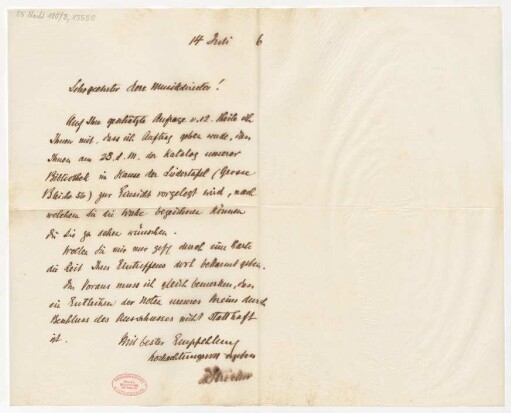 14 Juli 6
Sehr geehrter Herr Musikdirector!
Auf Ihre geschätzte Anfrage v. 12. theile ich
Ihnen mit, dass ich Auftrag geben werde, dass
Ihnen am 23. d. M. der Katalog unserer
Bibliothek im Hause der Liedertafel (Grosse
56) zur Einsicht vorgelegt wird, nach
welchem Sie die Werke bezeichnen können
die Sie zu sehen wünschen.
Wollen Sie mir nur gefl. durch eine Karte
die Zeit Ihres Eintreffens dort bekannt geben.
Im Voraus muss ich gleich bemerken, dass
ein Entleihen der Noten unseres Vereins durch
Beschluss des Ausschusses nicht statthaft
ist.
Mit bester Empfehlung
hochachtungsvoll ergeben